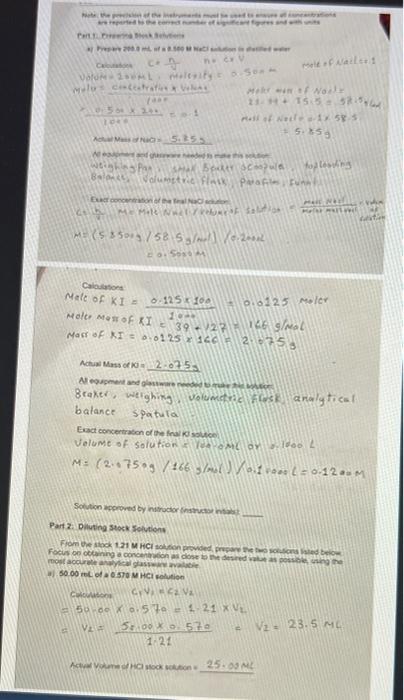 Note: the precision of the instruments must be used to ensure all concentrations
are reported to the correct number of significant figures and with units
Part 1: Preparing Stock Solutions
a) Prepare 200.0 mL of a 0.500 M NaCl solution in distilled water
Calculations C = n/v n = C x V mole of NaCl = 0.1
Volume = 200 mL, Molarity = 0.500 m
Mole = Concentration x Volume / 1000
Molar mass of NaCl =
23.99 + 35.5 = 58.5 g/mol
= 0.500 x 200 / 1000 = 0.1
Mass of NaCl = 0.1 x 58.5
= 5.85g
Actual Mass of NaCl = 5.85g
All equipment and glassware needed to make this solution:
weighing Pan, small Beaker, scoopula, toploading
Balance, Volumetric flask, parafilm, funnel
Exact concentration of the final NaCl solution:
M = Mole NaCl / volume of solution = mass NaCl
M = (5.8500g / 58.5 g/mol) / 0.200L
= 0.5000 M
Calculations:
Mole of KI = 0.125 x 100 / 1000 = 0.0125 moler
Moler Mass of KI = 39 + 127 = 166 g/mol
Mass of KI = 0.0125 x 166 = 2.075g
Actual Mass of KI = 2.075g
All equipment and glassware needed to make this solution:
Beaker, weighing, volumetric flask, analytical
balance spatula
Exact concentration of the final KI solution:
Volume of solution = 100.0mL or 0.1000 L
M = (2.0750g / 166 g/mol) / 0.10000 L = 0.1200 M
Solution approved by instructor (instructor initials):
Part 2: Diluting Stock Solutions
From the stock 1.21 M HCl solution provided, prepare the two solutions listed below.
Focus on obtaining a concentration as close to the desired value as possible, using the
most accurate analytical glassware available.
a) 50.00 mL of a 0.570 M HCl solution
Calculations C1V1 = C2V2
= 50.00 x 0.570 = 1.21 x V2
= V2 = 50.00 x 0.570 / 1.21 = V2 = 23.5 mL
Actual Volume of HCl stock solution = 25.00 mL